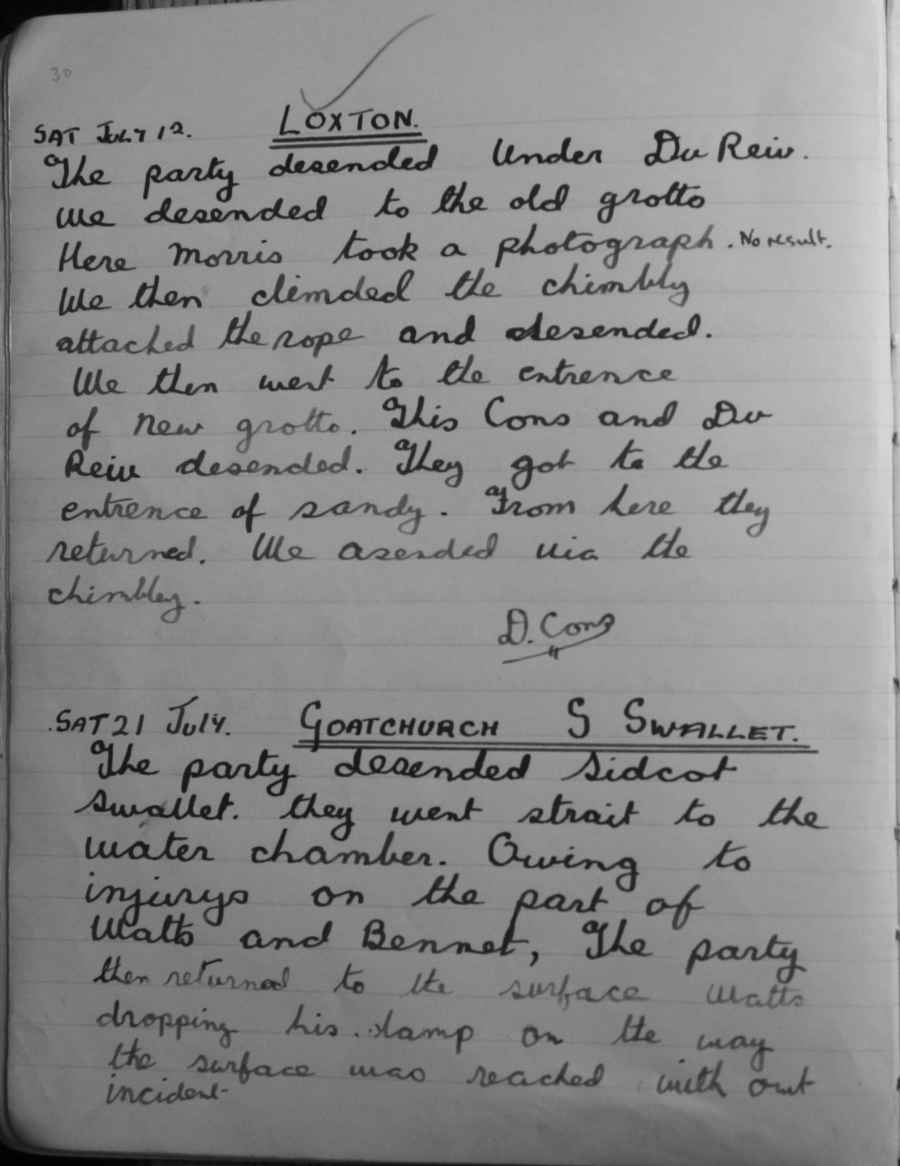 30
LOXTON.
SAT JULY 12.
The party desended Under Du Reiu.
We desended to the old grotto
Here Morris took a photograph. No result.
We then climded the chimbly
attached the rope and desended.
We then went to the entrence
of New grotto. This Cons and Du
Reiu desended. They got to the
entrence of sandy. From here they
returned. We asended via the
chimbley.
D. Cons
SAT 21 JULY. GOATCHURCH S SWALLET.
The party desended Sidcot
Swallet. they went strait to the
water chamber. Owing to
injurys on the part of
Watts and Bennet, The party
then returned to the surface Watts
dropping his lamp on the way
the surface was reached with out
incident-